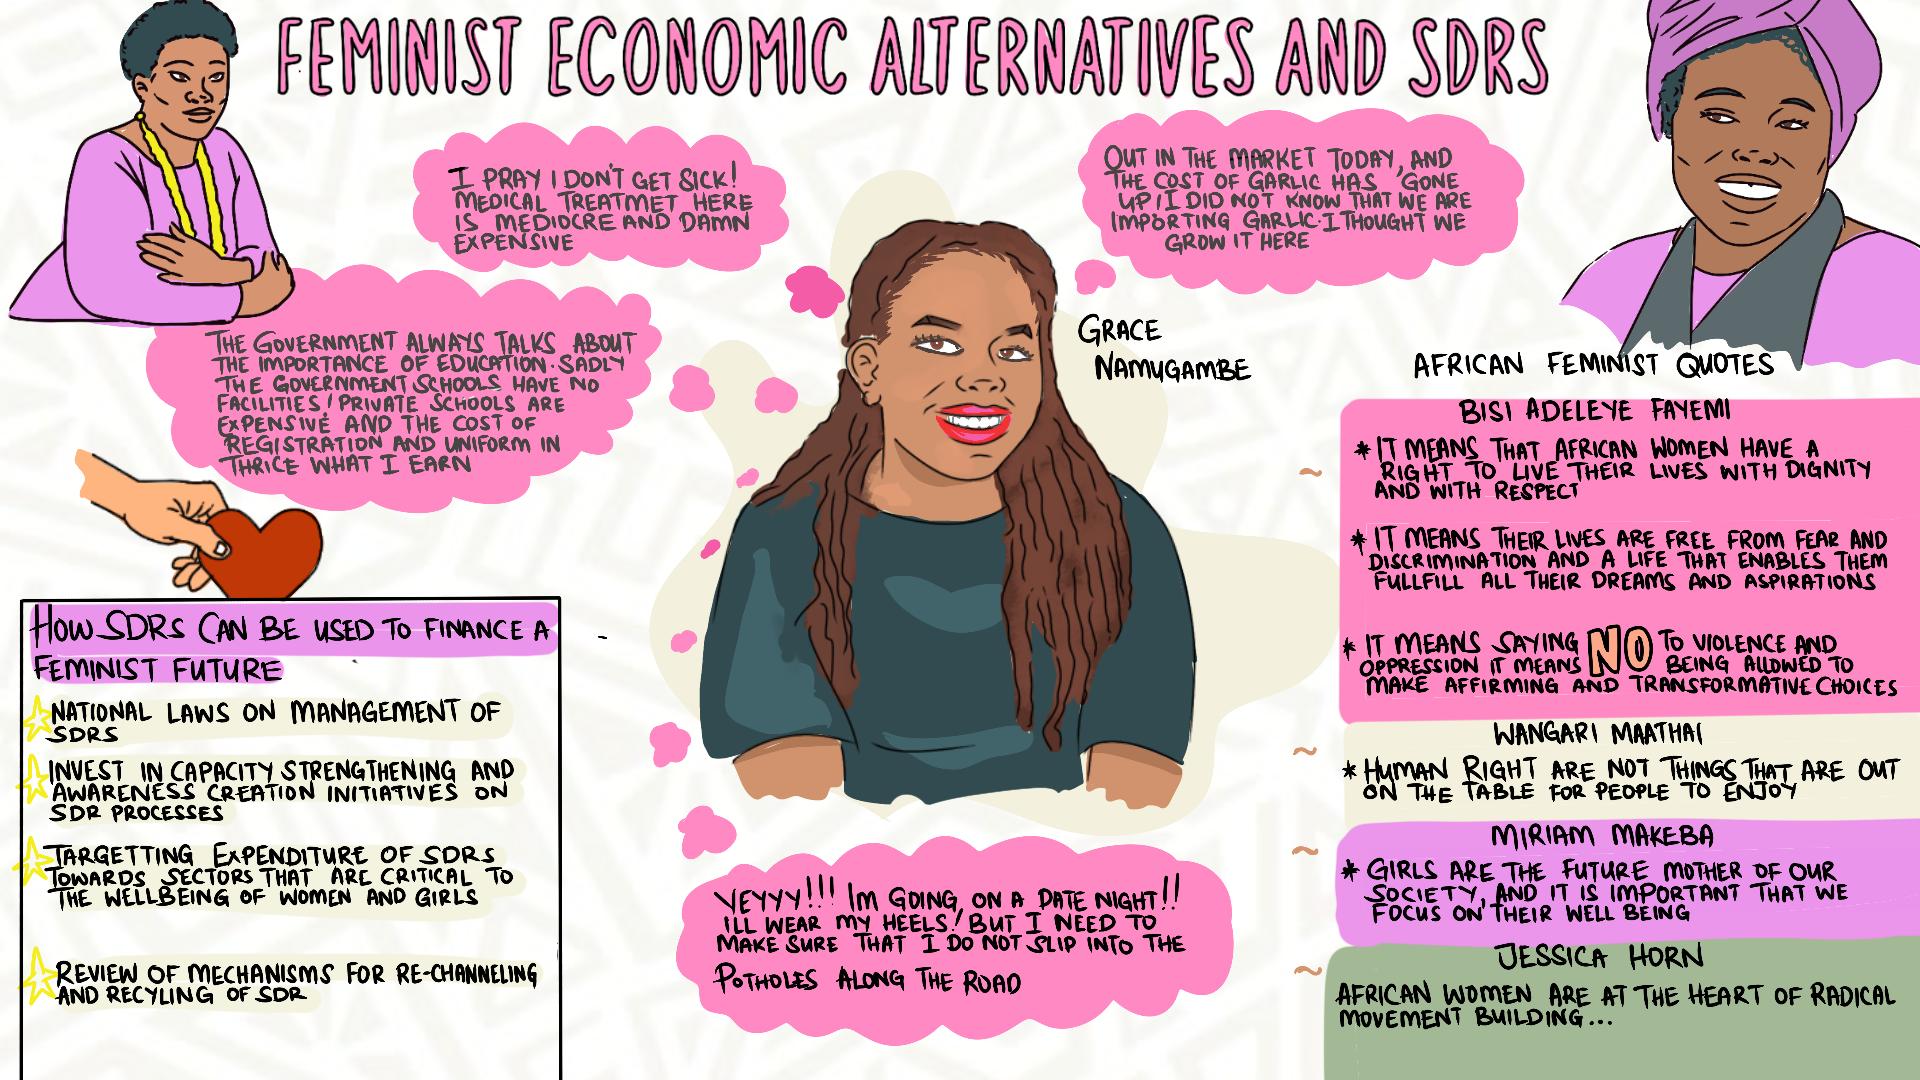 FEMINIST ECONOMIC ALTERNATIVES AND SDRS
I PRAY I DON'T GET SICK!
MEDICAL TREATMET HERE
IS MEDIOCRE AND DAMN
EXPENSIVE
OUT IN THE MARKET TODAY, AND
THE COST OF GARLIC HAS GONE
UP! I DID NOT KNOW THAT WE ARE
IMPORTING GARLIC. I THOUGHT WE
GROW IT HERE
THE GOVERNMENT ALWAYS TALKS ABOUT
THE IMPORTANCE OF EDUCATION. SADLY
THE GOVERNMENT SCHOOLS HAVE NO
FACILITIES! PRIVATE SCHOOLS ARE
EXPENSIVE AND THE COST OF
REGISTRATION AND UNIFORM IN
THRICE WHAT I EARN
GRACE
NAMUGAMBE
HOW SDRS CAN BE USED TO FINANCE A
FEMINIST FUTURE
NATIONAL LAWS ON MANAGEMENT OF
SDRS
INVEST IN CAPACITY STRENGTHENING AND
AWARENESS CREATION INITIATIVES ON
SDR PROCESSES
TARGETTING EXPENDITURE OF SDRS
TOWARDS SECTORS THAT ARE CRITICAL TO
THE WELLBEING OF WOMEN AND GIRLS
REVIEW OF MECHANISMS FOR RE-CHANNELING
AND RECYLING OF SDR
YEYYY!!! IM GOING ON A DATE NIGHT!!
ILL WEAR MY HEELS! BUT I NEED TO
MAKE SURE THAT I DO NOT SLIP INTO THE
POTHOLES ALONG THE ROAD
AFRICAN FEMINIST QUOTES
BISI ADELEYE FAYEMI
* IT MEANS THAT AFRICAN WOMEN HAVE A
RIGHT TO LIVE THEIR LIVES WITH DIGNITY
AND WITH RESPECT
* IT MEANS THEIR LIVES ARE FREE FROM FEAR AND
DISCRIMINATION AND A LIFE THAT ENABLES THEM
FULLFILL ALL THEIR DREAMS AND ASPIRATIONS
* IT MEANS SAYING NO TO VIOLENCE AND
OPPRESSION IT MEANS BEING ALLOWED TO
MAKE AFFIRMING AND TRANSFORMATIVE CHOICES
WANGARI MAATHAI
* HUMAN RIGHT ARE NOT THINGS THAT ARE OUT
ON THE TABLE FOR PEOPLE TO ENJOY
MIRIAM MAKEBA
* GIRLS ARE THE FUTURE MOTHER OF OUR
SOCIETY, AND IT IS IMPORTANT THAT WE
FOCUS ON THEIR WELL BEING
JESSICA HORN
AFRICAN WOMEN ARE AT THE HEART OF RADICAL
MOVEMENT BUILDING...